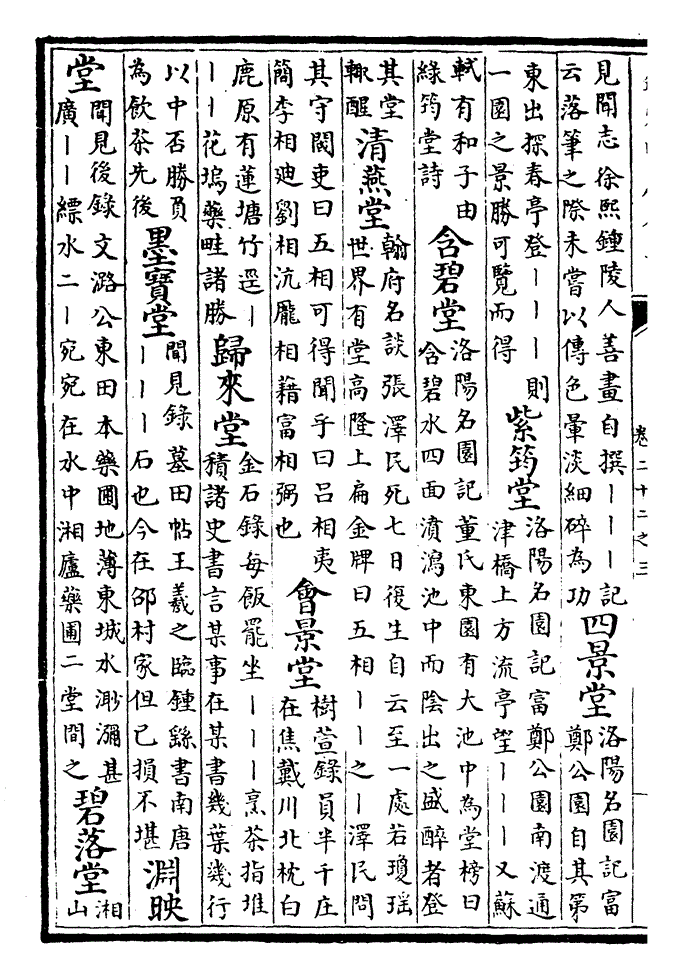 見聞志徐熙鍾陵人善畫自撰｜｜｜記
云落筆之際未嘗以傅色暈淡細碎為功
四景堂
洛陽名園記富
鄭公園自其第
東出探春亭登｜｜｜則
一園之景勝可覽而得
紫筠堂
洛陽名園記富鄭公園南渡通
津橋上方流亭望｜｜｜又蘇
軾有和子由
綠筠堂詩
含碧堂
洛陽名園記董氏東園有大池中為堂榜曰
含碧水四面濆瀉池中而陰出之盛醉者登
其堂
輒醒
清燕堂
翰府名談張澤民死七日復生自云至一處若瓊瑤
世界有堂高隆上扁金牌曰五相｜｜之｜澤民問
其守閽吏曰五相可得聞乎曰呂相夷
簡李相廸劉相沆龎相藉富相弼也
會景堂
樹萱錄員半千庄
在焦戴川北枕白
鹿原有蓮塘竹逕｜
｜｜花塢藥畦諸勝
歸來堂
金石錄每飯罷坐｜｜｜烹茶指堆
積諸史書言某事在某書幾葉幾行
以中否勝負
為飲茶先後
墨寶堂
聞見錄墓田帖王羲之臨鍾繇書南唐
｜｜｜石也今在邵村家但已損不堪
淵映
堂
聞見後錄文潞公東田本藥圃地薄東城水渺瀰甚
廣｜｜縹水二｜宛宛在水中湘廬藥圃二堂間之
碧落堂
湘
山
卷二十二之三